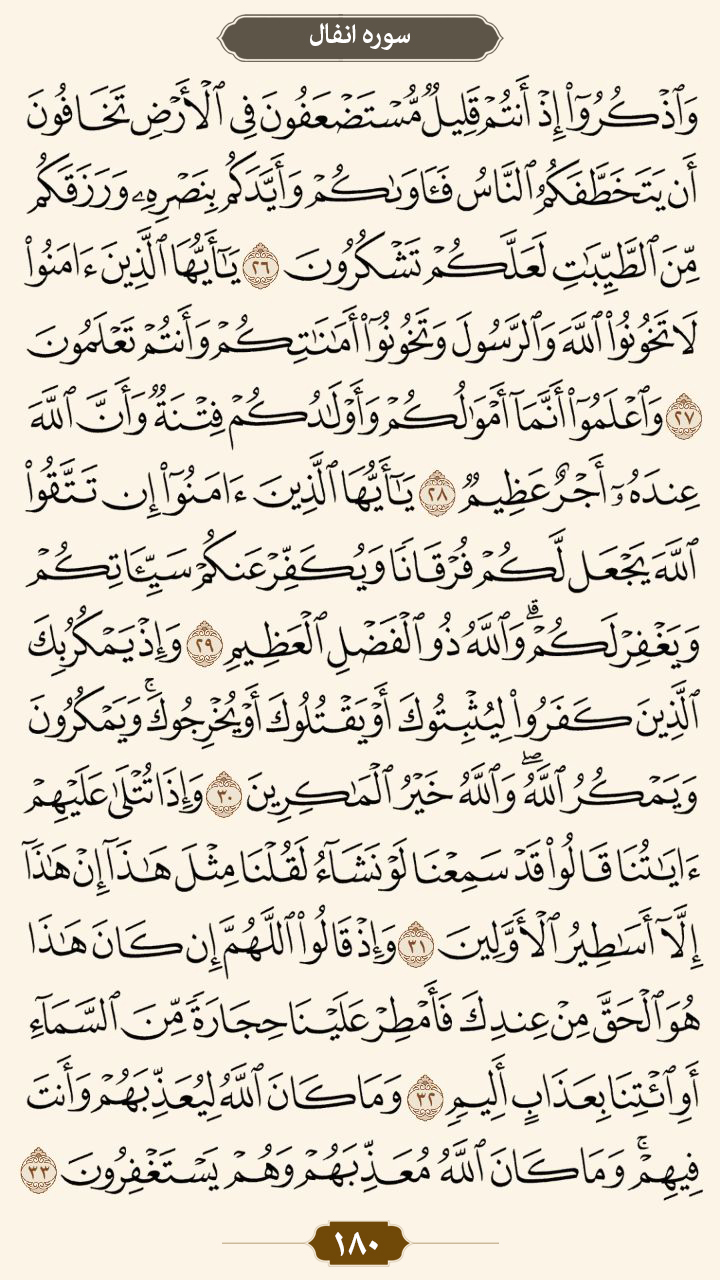 سوره انفال
وَٱذۡكُرُوٓاْ إِذۡ أَنتُمۡ قَلِيلٞ مُّسۡتَضۡعَفُونَ فِي ٱلۡأَرۡضِ تَخَافُونَ
أَن يَتَخَطَّفَكُمُ ٱلنَّاسُ فَـَٔاوَىٰكُمۡ وَأَيَّدَكُم بِنَصۡرِهِۦ وَرَزَقَكُم
مِّنَ ٱلطَّيِّبَٰتِ لَعَلَّكُمۡ تَشۡكُرُونَ ٢٦ يَـٰٓأَيُّهَا ٱلَّذِينَ ءَامَنُواْ
لَا تَخُونُواْ ٱللَّهَ وَٱلرَّسُولَ وَتَخُونُوٓاْ أَمَٰنَٰتِكُمۡ وَأَنتُمۡ تَعۡلَمُونَ
٢٧ وَٱعۡلَمُوٓاْ أَنَّمَآ أَمۡوَٰلُكُمۡ وَأَوۡلَٰدُكُمۡ فِتۡنَةٞ وَأَنَّ ٱللَّهَ
عِندَهُۥٓ أَجۡرٌ عَظِيمٞ ٢٨ يَـٰٓأَيُّهَا ٱلَّذِينَ ءَامَنُوٓاْ إِن تَتَّقُواْ
ٱللَّهَ يَجۡعَل لَّكُمۡ فُرۡقَانٗا وَيُكَفِّرۡ عَنكُمۡ سَيِّـَٔاتِكُمۡ
وَيَغۡفِرۡ لَكُمۡۗ وَٱللَّهُ ذُو ٱلۡفَضۡلِ ٱلۡعَظِيمِ ٢٩ وَإِذۡ يَمۡكُرُ بِكَ
ٱلَّذِينَ كَفَرُواْ لِيُثۡبِتُوكَ أَوۡ يَقۡتُلُوكَ أَوۡ يُخۡرِجُوكَۚ وَيَمۡكُرُونَ
وَيَمۡكُرُ ٱللَّهُۖ وَٱللَّهُ خَيۡرُ ٱلۡمَٰكِرِينَ ٣٠ وَإِذَا تُتۡلَىٰ عَلَيۡهِمۡ
ءَايَٰتُنَا قَالُواْ قَدۡ سَمِعۡنَا لَوۡ نَشَآءُ لَقُلۡنَا مِثۡلَ هَٰذَآ إِنۡ هَٰذَآ
إِلَّآ أَسَٰطِيرُ ٱلۡأَوَّلِينَ ٣١ وَإِذۡ قَالُواْ ٱللَّهُمَّ إِن كَانَ هَٰذَا
هُوَ ٱلۡحَقَّ مِنۡ عِندِكَ فَأَمۡطِرۡ عَلَيۡنَا حِجَارَةٗ مِّنَ ٱلسَّمَآءِ
أَوِ ٱئۡتِنَا بِعَذَابٍ أَلِيمٖ ٣٢ وَمَا كَانَ ٱللَّهُ لِيُعَذِّبَهُمۡ وَأَنتَ
فِيهِمۡۚ وَمَا كَانَ ٱللَّهُ مُعَذِّبَهُمۡ وَهُمۡ يَسۡتَغۡفِرُونَ ٣٣
١٨٠